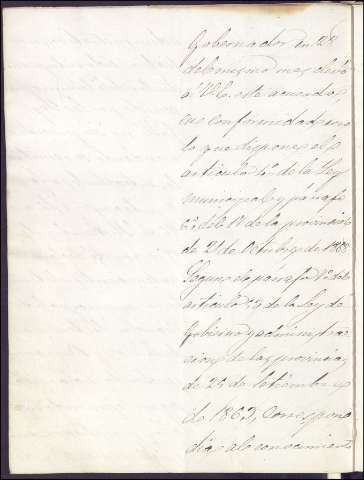 Gobernador en 28
del mismo mes elevó
á V.E. este acuerdo,
en conformidad con
lo que disponen el
artículo de la Ley
municipal y párrafo
6º del 14 de la provincial
de 21 de Octubre de 1868
Segun el párrafo 4º del
artículo 59 de la ley de
Gobierno y administra
cion de las provincias
de 25 de Setiembre
de 1863, correspon
dia al conocimiento